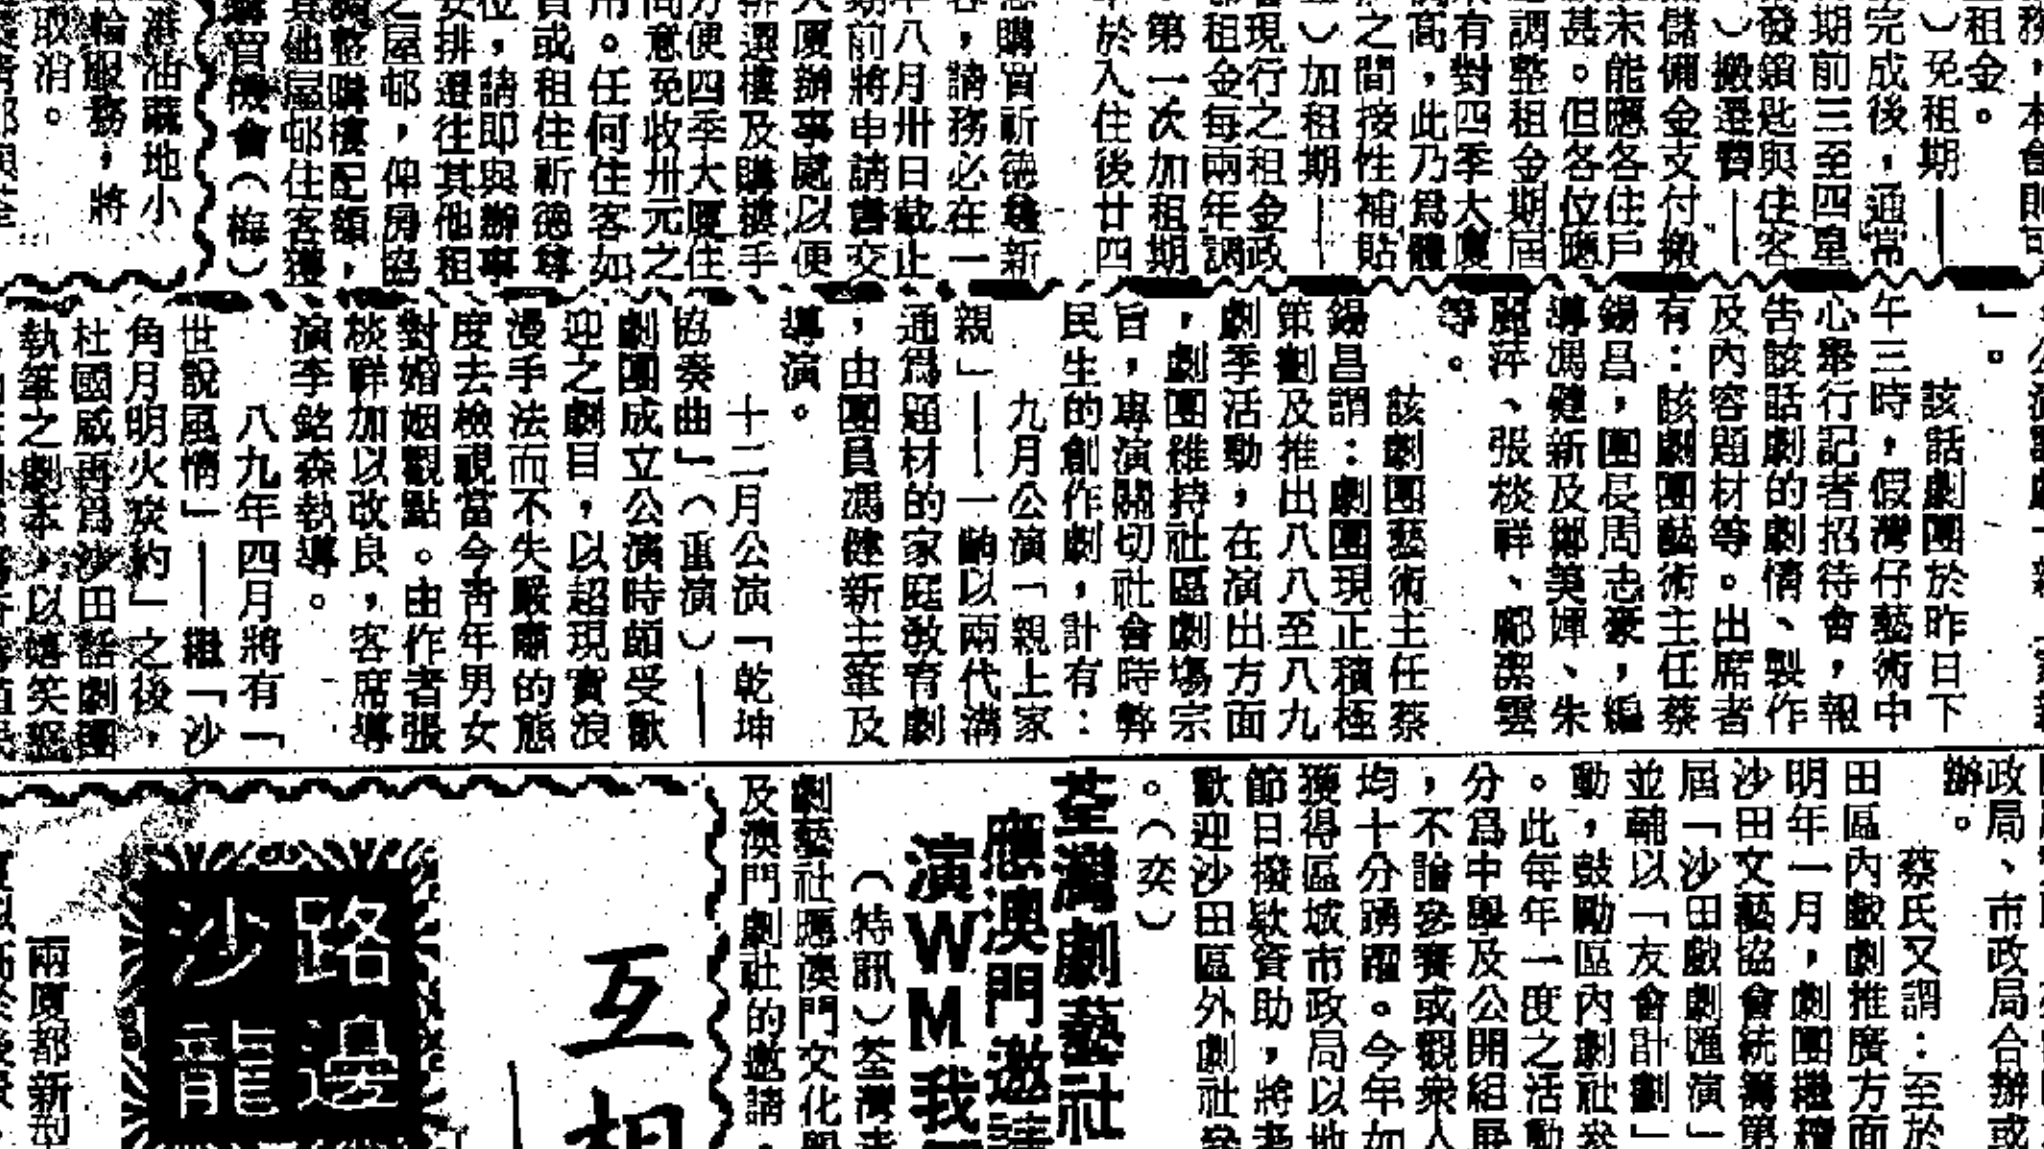 務，本會財
租金。
）免租期——
完成後，通常
期前三至四星
發鎖匙與住客
）搬遷費——
儲備金支付搬
未能應各住戶
甚。但各位應
調整租金期屆
有對四季大廈
高，此乃爲體
之間接性補貼
）加租期——
現行之租金政
租金每兩年調
第一次加租期
於入住後廿四
購買祈德尊新
，請務必在一
年八月卅日截止
期前將申請書交
大廈辦事處以便
排選樓及購樓手
方便四季大廈住
同意免收卅元之
用。任何住客如
買或租住祈德尊
位，請即與辦事
安排遷往其他租
之屋邨，俾房協
調整購樓配額，
其他屋邨住客獲
購買機會（梅）
港油蔴地小
輪服務，將
取消。
」。
該話劇團於昨日下
午三時，假灣仔藝術中
心舉行記者招待會，報
告該話劇的劇情、製作
及內容題材等。出席者
有：該劇團藝術主任蔡
錫昌，團長周志豪，編
導馮健新及鄭美嬋、朱
麗萍、張棪祥、鄺潔雲
等。
該劇團藝術主任蔡
錫昌謂：劇團現正積極
策劃及推出八八至八九
劇季活動，在演出方面
，劇團維持社區劇場宗
旨，專演關切社會時弊
民生的創作劇，計有：
九月公演「親上家
親」——一齣以兩代溝
通爲題材的家庭敎育劇
，由團員馮健新主筆及
導演。
十二月公演「乾坤
協奏曲」（重演）——
劇團成立公演時頗受歡
迎之劇目，以超現實浪
漫手法而不失嚴肅的態
度去檢視當今靑年男女
對婚姻觀點。由作者張
棪祥加以改良，客席導
演李銘森執導。
八九年四月將有「
世說風情」——繼「沙
角月明火炭約」之後，
杜國威再爲沙田話劇團
執筆之劇本，以嬉笑怒
政局、市政局合辦或
辦。
蔡氏又謂：至於
田區內戲劇推廣方面
明年一月，劇團繼續
沙田文藝協會統籌第
屆「沙田戲劇匯演」
並輔以「友會計劃」
動，鼓勵區內劇社參
。此每年一度之活動
分爲中學及公開組展
，不論參賽或觀衆人
均十分踴躍。今年如
獲得區域市政局以地
節日撥欵資助，將考
歡迎沙田區外劇社參
。（奕）
荃灣劇藝社
應澳門邀請
演WM我
（特訊）荃灣
劇藝社應澳門文化
及澳門劇社的邀請，
互相
路邊
沙龍
兩廈都新型